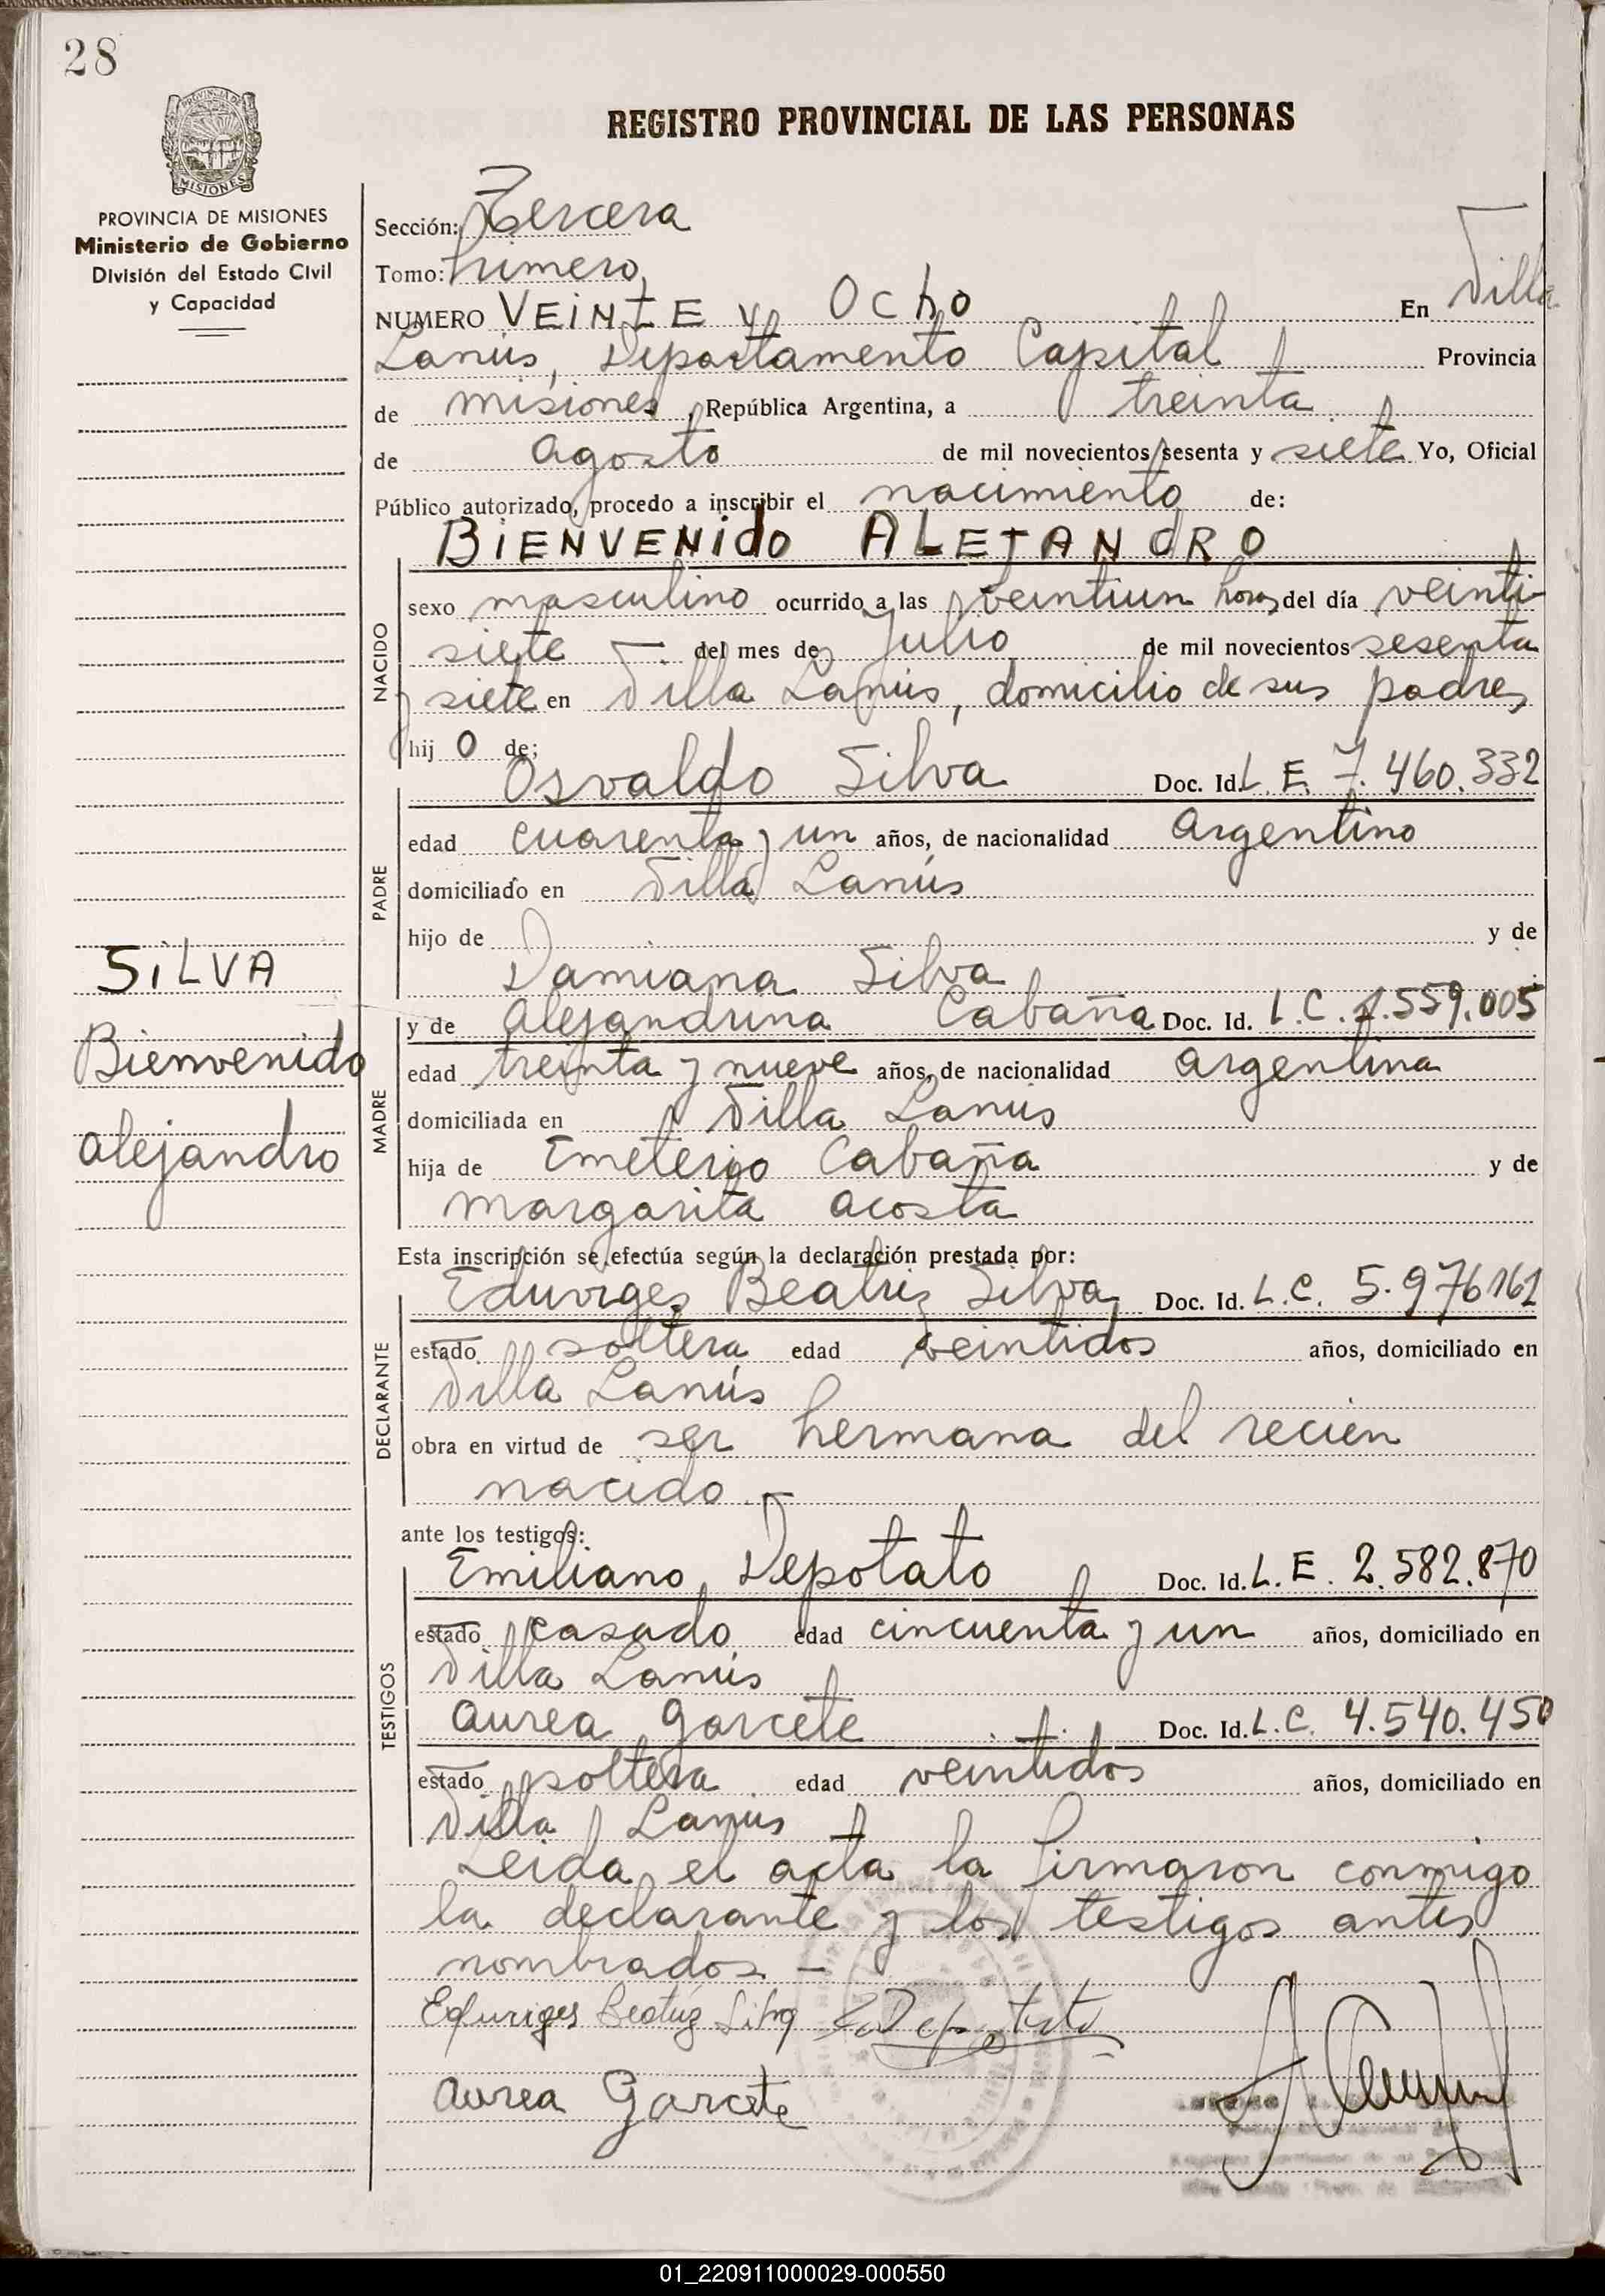 28
PROVINCIA DE MISIONES
Ministerio de Gobierno
División del Estado Civil
y Capacidad
REGISTRO PROVINCIAL DE LAS PERSONAS
Sección: Tercera
Tomo: Primero
NUMERO VEINTE y OchO En Villa
Lanús, Departamento Capital Provincia
de misiones, República Argentina, a treinta
de agosto de mil novecientos sesenta y siete Yo, Oficial
Público autorizado, procedo a inscribir el nacimiento de:
BIENVENIdO ALEJANdRO
NACIDO
sexo masculino ocurrido a las veintiun horas del día veinti-
siete del mes de Julio de mil novecientos sesenta
y siete en Villa Lanús, domicilio de sus padres
hij o de:
PADRE
Osvaldo Silva Doc. Id. L. E. 7.460.332
edad cuarenta y un años, de nacionalidad argentino
domiciliado en Villa Lanús
hijo de y de
Damiana Silva
MADRE
y de alejandrina Cabaña Doc. Id. L.C. 1.559.005
edad treinta y nueve años, de nacionalidad argentina
domiciliada en Villa Lanús
hija de Emeterio Cabaña y de
margarita acosta
SiLVA
Bienvenido
alejandro
Esta inscripción se efectúa según la declaración prestada por:
DECLARANTE
Eduviges Beatriz Silva Doc. Id. L.C. 5.976161
estado soltera edad veintidos años, domiciliado en
Villa Lanús
obra en virtud de ser hermana del recien
nacido.-
ante los testigos:
TESTIGOS
Emiliano Depotato Doc. Id. L.E. 2.582.870
estado casado edad cincuenta y un años, domiciliado en
Villa Lanús
aurea garcete Doc. Id. L.C. 4.540.450
estado soltera edad veintidos años, domiciliado en
Villa Lanus
Leida el acta la firmaron conmigo
la declarante y los testigos antes
nombrados -
Eduviges Beatriz Silva
aurea Garcete
01_220911000029-000550